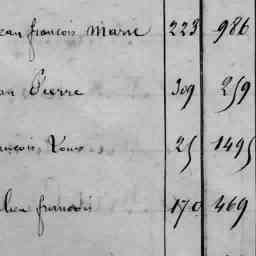 ean françois Marie 223 986
an Pierre 309 259
ançois Louis 25 1495
lien francois 170 469